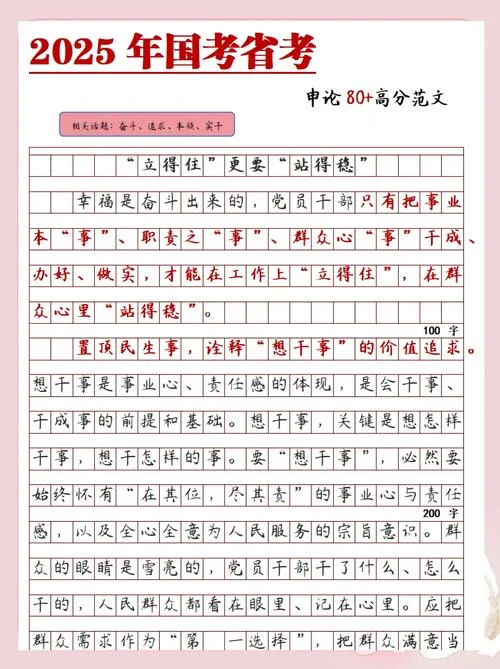 2025 年国考省考
申论 80+高分范文
相关话题：奋斗、追求、本领、实干
“立得住”更要“站得稳”
幸福是奋斗出来的，党员干部只有把事业
本“事”、职责之“事”、群众心“事”干成、
办好、做实，才能在工作上“立得住”，在群
众心里“站得稳”。
100 字
置顶民生事，诠释“想干事”的价值追求。
想干事是事业心、责任感的体现，是会干事、
干成事的前提和基础。想干事，关键是想怎样
干事，想干怎样的事。要“想干事”，必然要
始终怀有“在其位，尽其责”的事业心与责任
200 字
感，以及全心全意为人民服务的宗旨意识。群
众的眼睛是雪亮的，党员干部干了什么、怎么
干的，人民群众都看在眼里、记在心里。应把
群众需求作为“第一选择”，把群众满意当